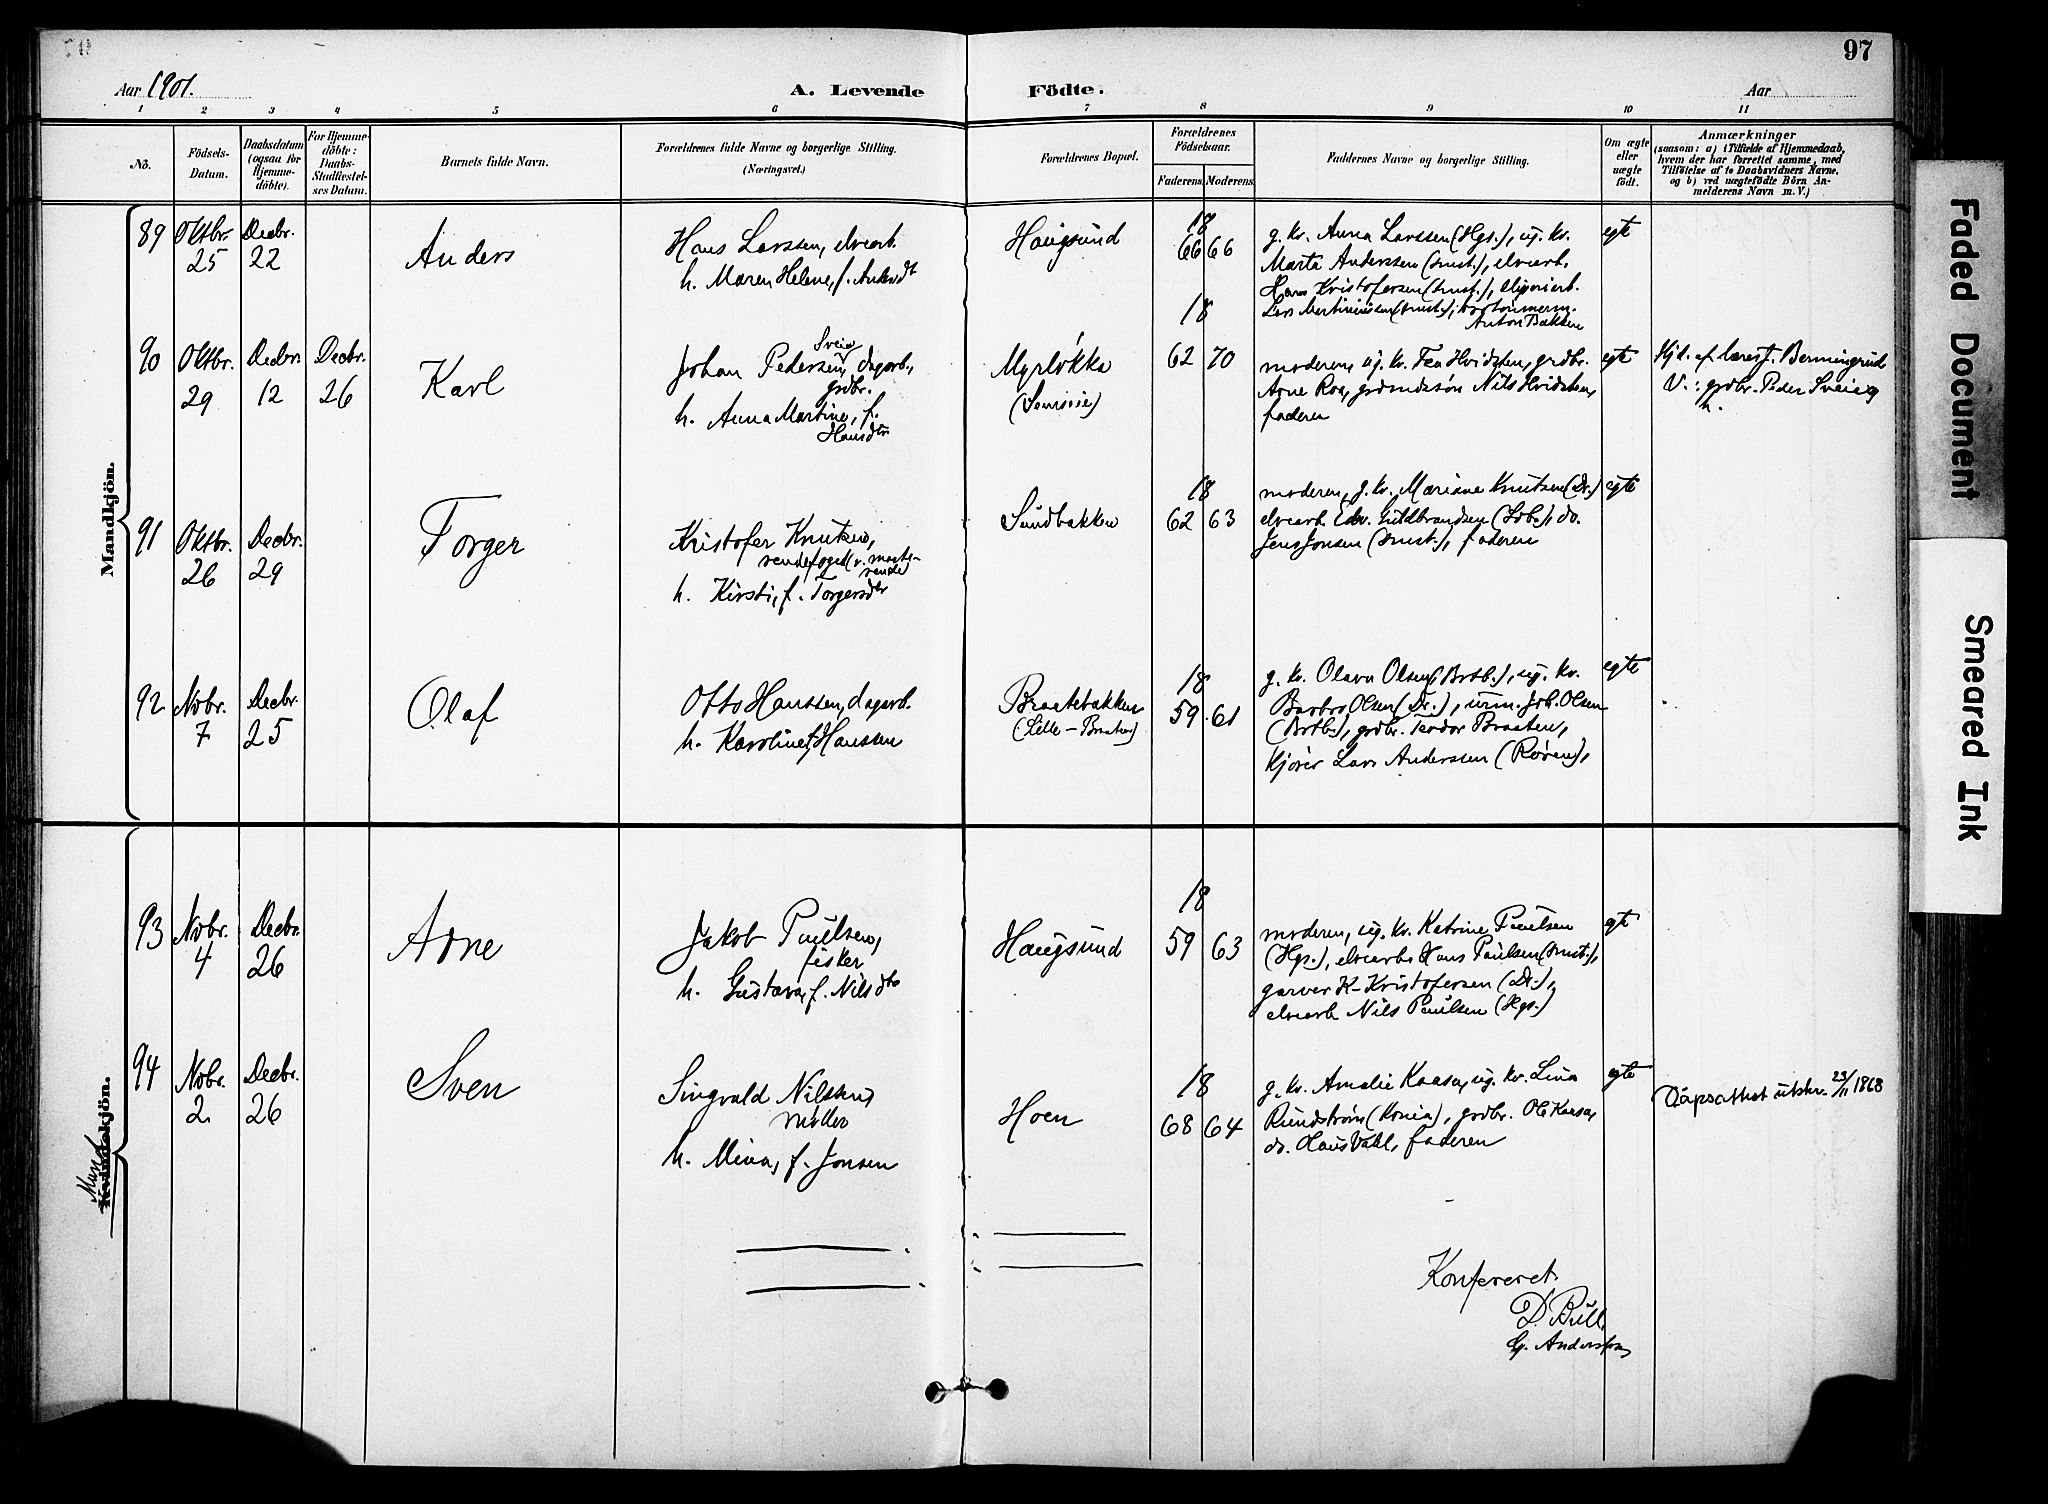 97
Aar 1901.
A. Levende Födte.
Aar
1 2 3 4 5 6 7 8 9 10 11
No.
Födsels-Datum.
Daabsdatum (ogsaa for Hjemme-döbte).
For Hjemme-döbte: Daabs-Stadfæstel-ses Datum.
Barnets fulde Navn.
Forældrenes fulde Navne og borgerlige Stilling.
(Næringsvei.)
Forældrenes Bopæl.
Forældrenes Födselsaar.
Faderens. Moderens.
Faddernes Navne og borgerlige Stilling.
Om ægte eller uægte födt.
Anmærkninger
(saasom: a) i Tilfælde af Hjemmedaab,
hvem der har forrettet samme, med
Tilföielse af to Daabsvidners Navne,
og b) ved uægtefödte Börn An-
melderens Navn m. V.)
Mandkjön.
89 Oktbr. 25 Decbr. 22
Anders
Hans Larssen, elvearb.
h. Maren Helene, f. Andersdt
Haugsund
18
66 66
g. kv. Anna Larssen (Hgs.), ug. kv.
Marta Anderssen (smst.), elvearb.
Hans Kristofersen (smst.),
egte
90 Oktbr. 29 Decbr. 12 Decbr. 26
Karl
Johan Pedersen Sveia, dagarb.,
grdbr.
h. Anna Martine, f.
Hansdtr
Myrløkka
18
62 70
moderen, ug. kv. Tea Hvidsten, grdbr.
Arne Roa, grdmdssøn Nils Hvidsten,
faderen
egte
Hjd. af lærer J. Bermingrud
V.: grdbr. Peder Sveia og
h.
91 Oktbr. 26 Decbr. 29
Torger
Kristofer Knutsen,
h. Kirsti, f. Torgersdtr
Sundbakken
18
62 63
moderen, g. kv. Mariane Knutsen (Dr.)
elvearb. Edv. Guldbrandsen (Sdb.), do.
Jens Jonsen (smst.), faderen
egte
92 Nobr. 7 Decbr. 25
Olaf
Otto Hanssen, dagarb.
h. Karoline f. Hanssen
Braatebakken
(Lille-Braaten)
18
59 61
g. kv. Olava Olsen (Brtb.), ug. kv.
Barbro Olsen (Dr.), urm. Joh. Olsen
(Brtb.), grdbr. Teodor Braaten,
kjører Lars Anderssen (Røren),
egte
Mand
Kvindekjön.
93 Nobr. 4 Decbr. 26
Arne
Jakob Paulsen,
fisker
h. Gustava, f. Nilsdtr
Haugsund
18
59 63
moderen, ug. kv. Katrine Paulsen
(Hgs.), elvearb. Hans Paulsen (smst.),
garver K. Kristofersen (Dr.),
elvearb. Nils Paulsen (Hgs.)
egte
94 Nobr. 2 Decbr. 26
Sven
Singvald Nilssen,
møller
h. Mina, f. Jonsen
Hoen
18
68 64
g. kv. Amalie Kaasa, ug. kv. Lina
Rundstrøm (Kr.ia), grdbr. Ole Kaasa,
do. Hans Vahl, faderen
egte
Dåpsattest utskr. 23/11 1868
Konfereret
D. Bull,
G. Anderssen
Faded Document
Smeared Ink